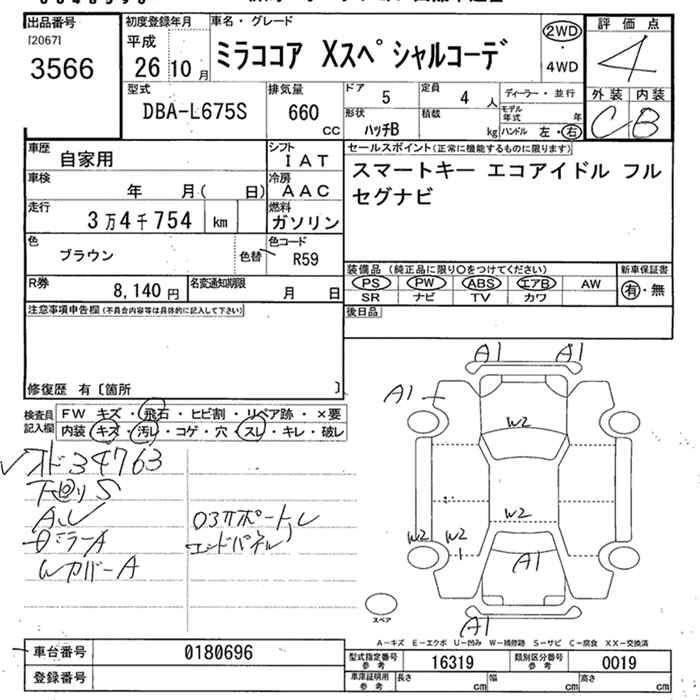 出品番号
[2067]
3566
初度登録年月
平成
26 10 月
車名・グレード
ミラココア Xスペシャルコーデ
2WD
4WD
評価点
4
外装 内装
C B
型式
DBA-L675S
排気量
660
CC
ドア
5
定員
4 人
ディーラー・並行
形状
ハッチB
積載
kg
モデル年式 年
ハンドル 左・右
車歴
自家用
シフト
IAT
セールスポイント(正常に機能するものに限ります)
スマートキー エコアイドル フル
セグナビ
車検
年 月( 日)
冷房
AAC
走行
3万4千754 km
燃料
ガソリン
色
ブラウン
色替
色コード
R59
装備品 (純正品に限り○をつけてください)
PS PW ABS エアB AW
SR ナビ TV カワ
新車保証書
有・無
R券
8,140 円
名変通知期限
月 日
後日品
注意事項申告欄(不具合内容等は具体的に記入して下さい)
修復歴 有〔箇所 〕
検査員
記入欄
FW キズ・飛石・ヒビ割・リペア跡・×要
内装 キズ・汚レ・コゲ・穴・スレ・キレ・破レ
オド34763
下回りS
ALV
DミラーA
WカバーA
ロヌサポートル
エンドパネル
A1
A1
A1
W2
W2
W2
W2
A1
A1
スペア
A-キズ E-エクボ U-凹み W-補修跡 S-サビ C-腐食 XX-交換済
車台番号
0180696
登録番号
型式指定番号
参考
16319
類別区分番号
参考
0019
車庫証明用
参考
長さ cm
幅 cm
高さ cm